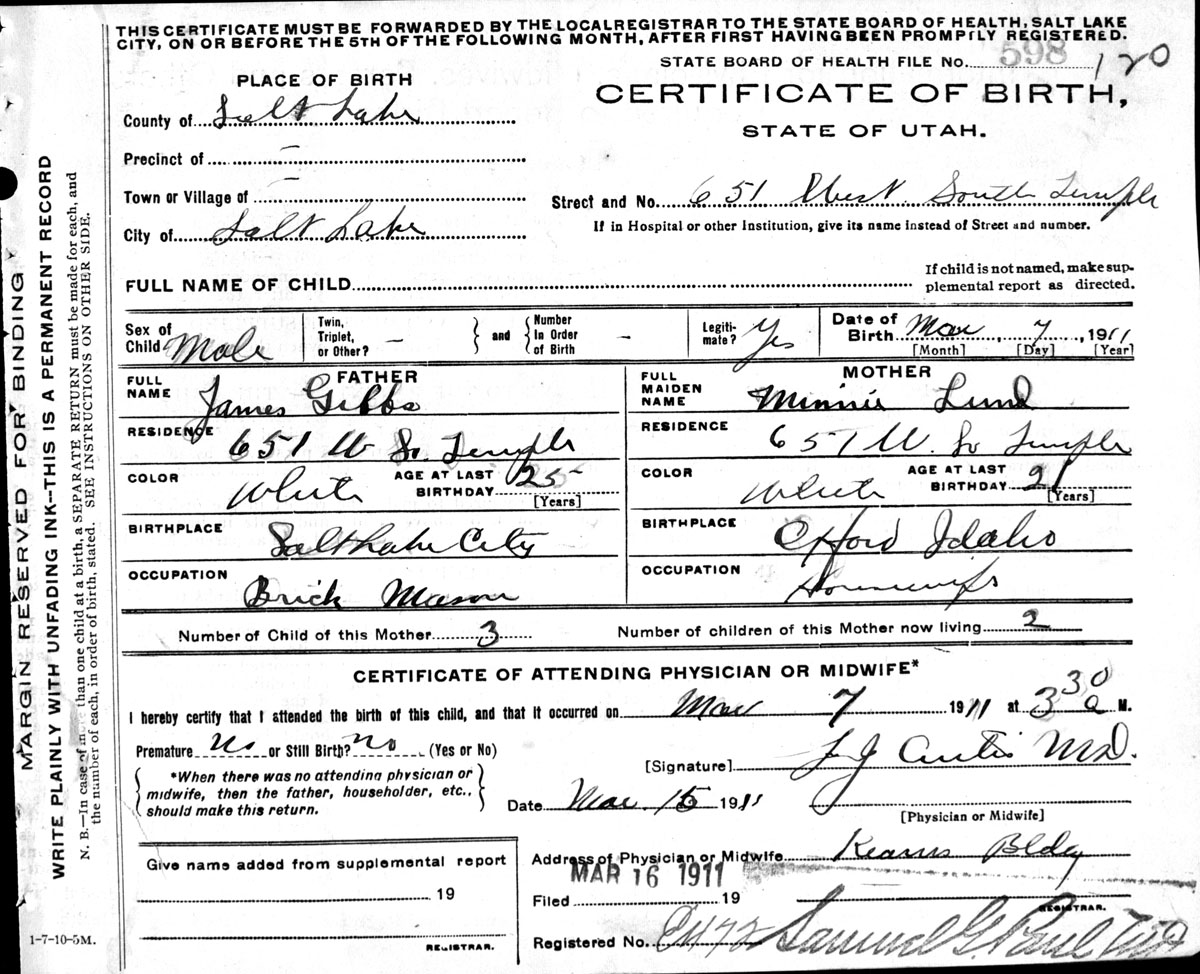 THIS CERTIFICATE MUST BE FORWARDED BY THE LOCAL REGISTRAR TO THE STATE BOARD OF HEALTH, SALT LAKE
CITY, ON OR BEFORE THE 5TH OF THE FOLLOWING MONTH, AFTER FIRST HAVING BEEN PROMPTLY REGISTERED.
STATE BOARD OF HEALTH FILE NO. 598 120
PLACE OF BIRTH
CERTIFICATE OF BIRTH,
STATE OF UTAH.
County of Salt Lake
Precinct of –
Town or Village of –
Street and No. 651 West South Temple
City of Salt Lake
If in Hospital or other Institution, give its name instead of Street and number.
FULL NAME OF CHILD
If child is not named, make sup-
plemental report as directed.
Sex of Child Male
Twin, Triplet, or Other? –
and
Number In Order of Birth –
Legiti-mate? Yes
Date of Birth Mar 7, 1911
[Month] [Day] [Year]
FATHER
FULL NAME James Gibbs
RESIDENCE 651 W So. Temple
COLOR White
AGE AT LAST BIRTHDAY 25
[Years]
BIRTHPLACE Salt Lake City
OCCUPATION Brick Mason
MOTHER
FULL MAIDEN NAME Minnie Lund
RESIDENCE 651 W. So Temple
COLOR White
AGE AT LAST BIRTHDAY 21
[Years]
BIRTHPLACE Oxford Idaho
OCCUPATION Housewife
Number of Child of this Mother 3
Number of children of this Mother now living 2
CERTIFICATE OF ATTENDING PHYSICIAN OR MIDWIFE*
I hereby certify that I attended the birth of this child, and that it occurred on Mar 7 1911 at 3 30 a M.
Premature No or Still Birth? no (Yes or No)
*When there was no attending physician or
midwife, then the father, householder, etc.,
should make this return.
[Signature] Curtis MD.
Date Mar. 15 1911
[Physician or Midwife]
Give name added from supplemental report
19
REGISTRAR.
Address of Physician or Midwife Kearns Bldg
Filed MAR 16 1911 19
REGISTRAR.
Registered No. Samuel G. Paul
1-7-10-5M.
MARGIN RESERVED FOR BINDING
WRITE PLAINLY WITH UNFADING INK--THIS IS A PERMANENT RECORD
N. B.—In case of more than one child at a birth, a SEPARATE RETURN must be made for each, and
the number of each, in order of birth, stated. SEE INSTRUCTIONS ON OTHER SIDE.